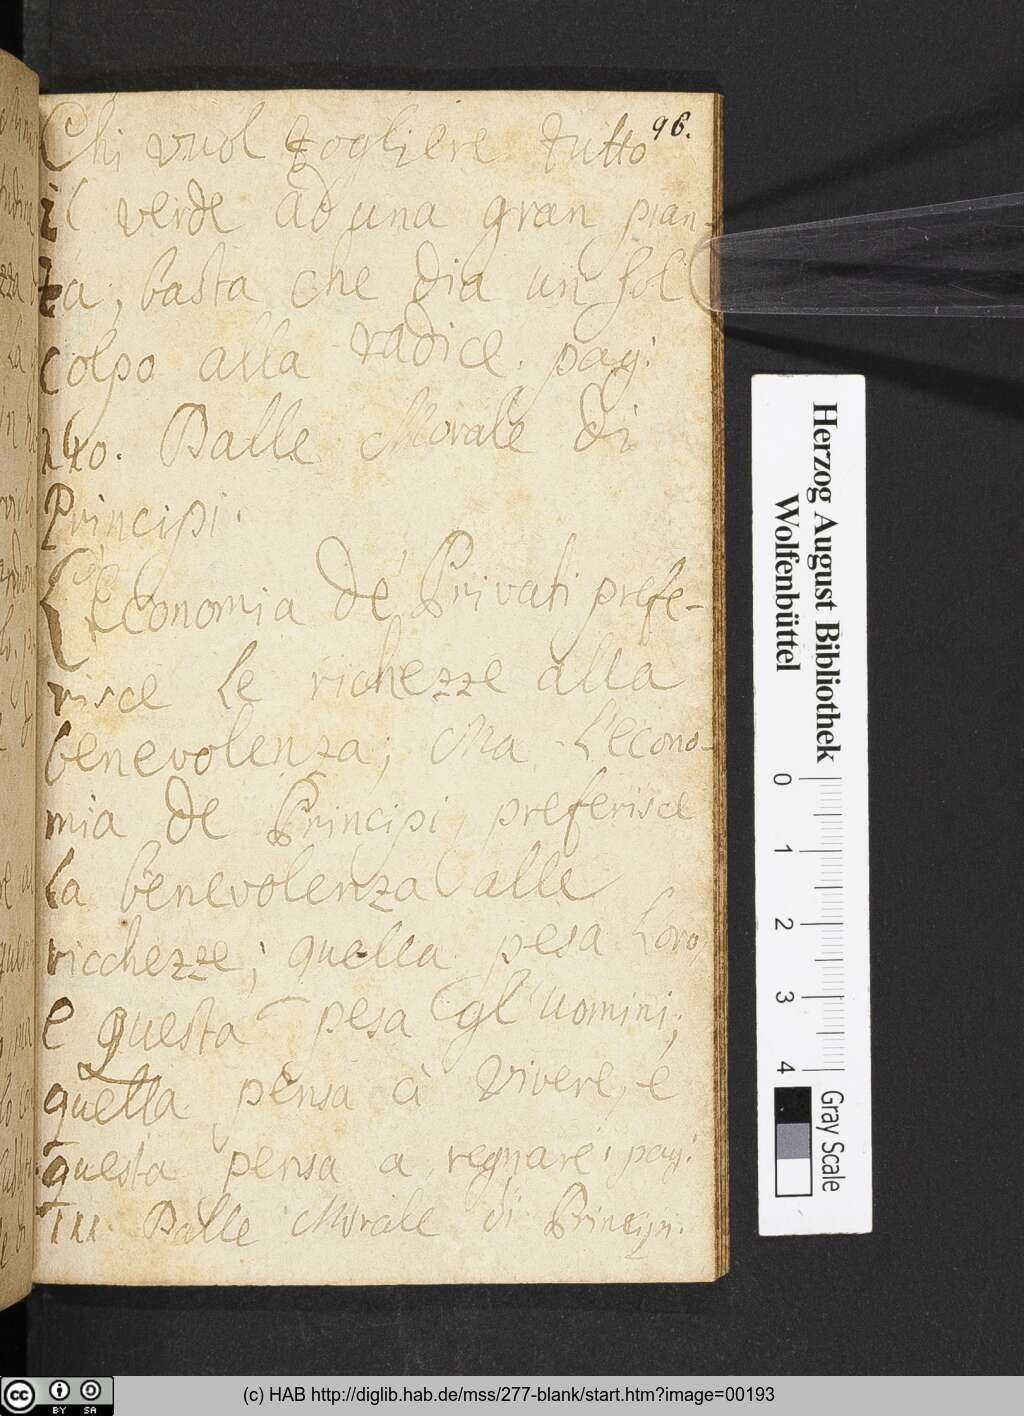 96.
Chi vuol togliere tutto
il verde ad una gran pian-
ta, basta che dia un sol
colpo alla radice. pag:
240. Dalle Morale di
Principi.
L'economia de Privati prefe-
risce le richezze alla
benevolenza; Ma l'econo-
mia de Principi, preferisce
la benevolenza alle
ricchezze; quella pesa l'oro,
e questa pesa gl'uomini;
quella pensa à vivere, e
questa pensa a regnare. pag:
111. Dalle Morale di Principi.
Herzog August Bibliothek
Wolfenbüttel
0 1 2 3 4
Gray Scale
cc BY SA
(c) HAB http://diglib.hab.de/mss/277-blank/start.htm?image=00193